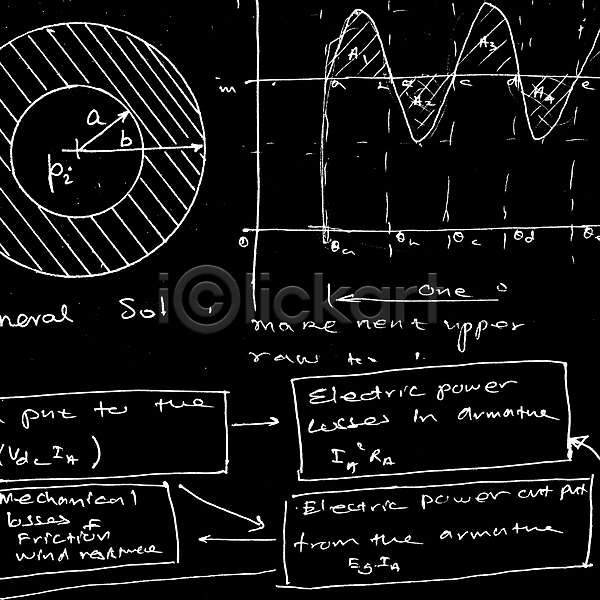 A₁
A₃
m
a
b
c
d
e
A₂
A₄
a
b
p₂
0
θa
θb
θc
θd
one
neral Sol
make next upper
raw
put to the
(Vdc IA)
Electric power
losses in armature
IA² RA
Mechanical
losses
Friction
wind resistance
Electric power out put
from the armature
Eg.IA
iclickart